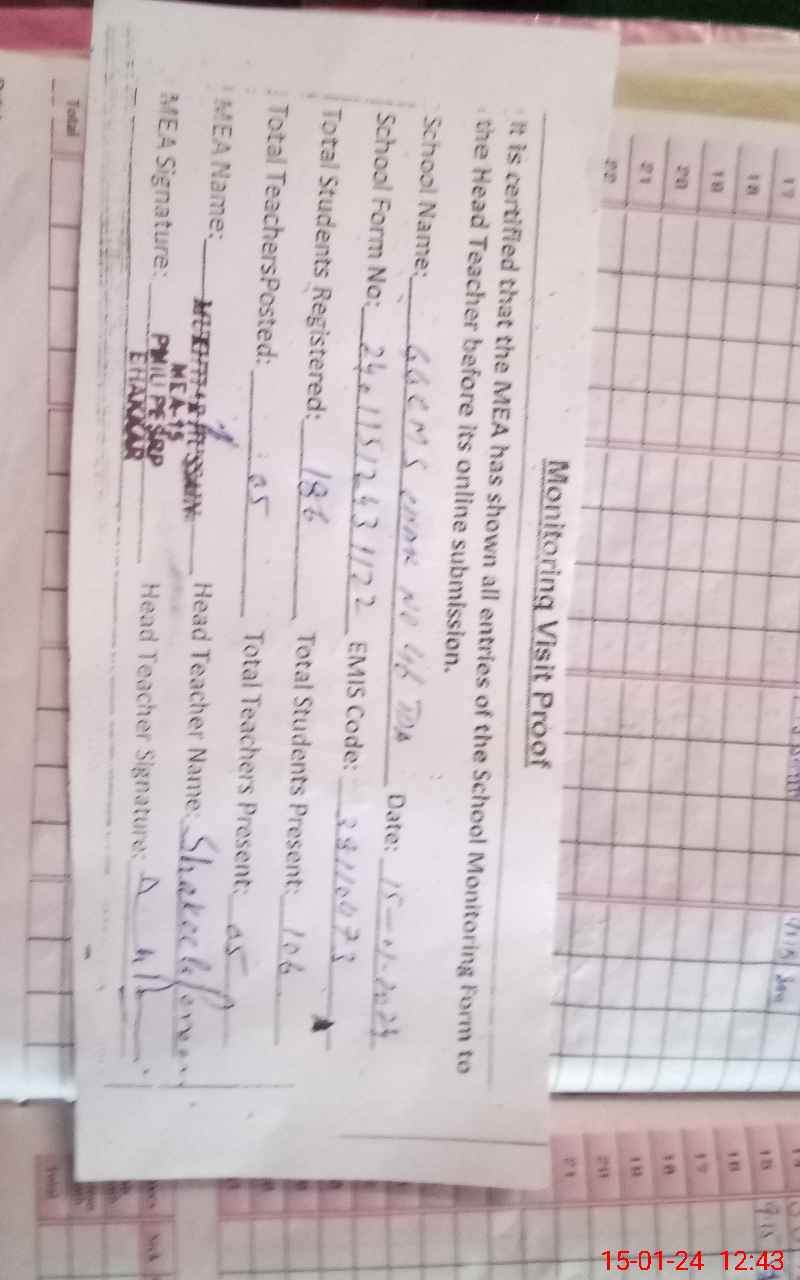 Monitoring Visit Proof
It is certified that the MEA has shown all entries of the School Monitoring Form to
the Head Teacher before its online submission.
School Name: GGCMS NO 46 TDA Date: 15-01-2024
School Form No: 24011512431122 EMIS Code: 38110073
Total Students Registered: 186 Total Students Present: 106
Total TeachersPosted: 05 Total Teachers Present: 05
MEA Name: MUKHTIAR HUSSAIN Head Teacher Name: Shakeela
MEA-15
MEA Signature: PMIU PESRP Head Teacher Signature:
BHAKKAR
Total
17
18
19
20
21
22
15
16
17
18
19
20
21
15-01-24 12:43